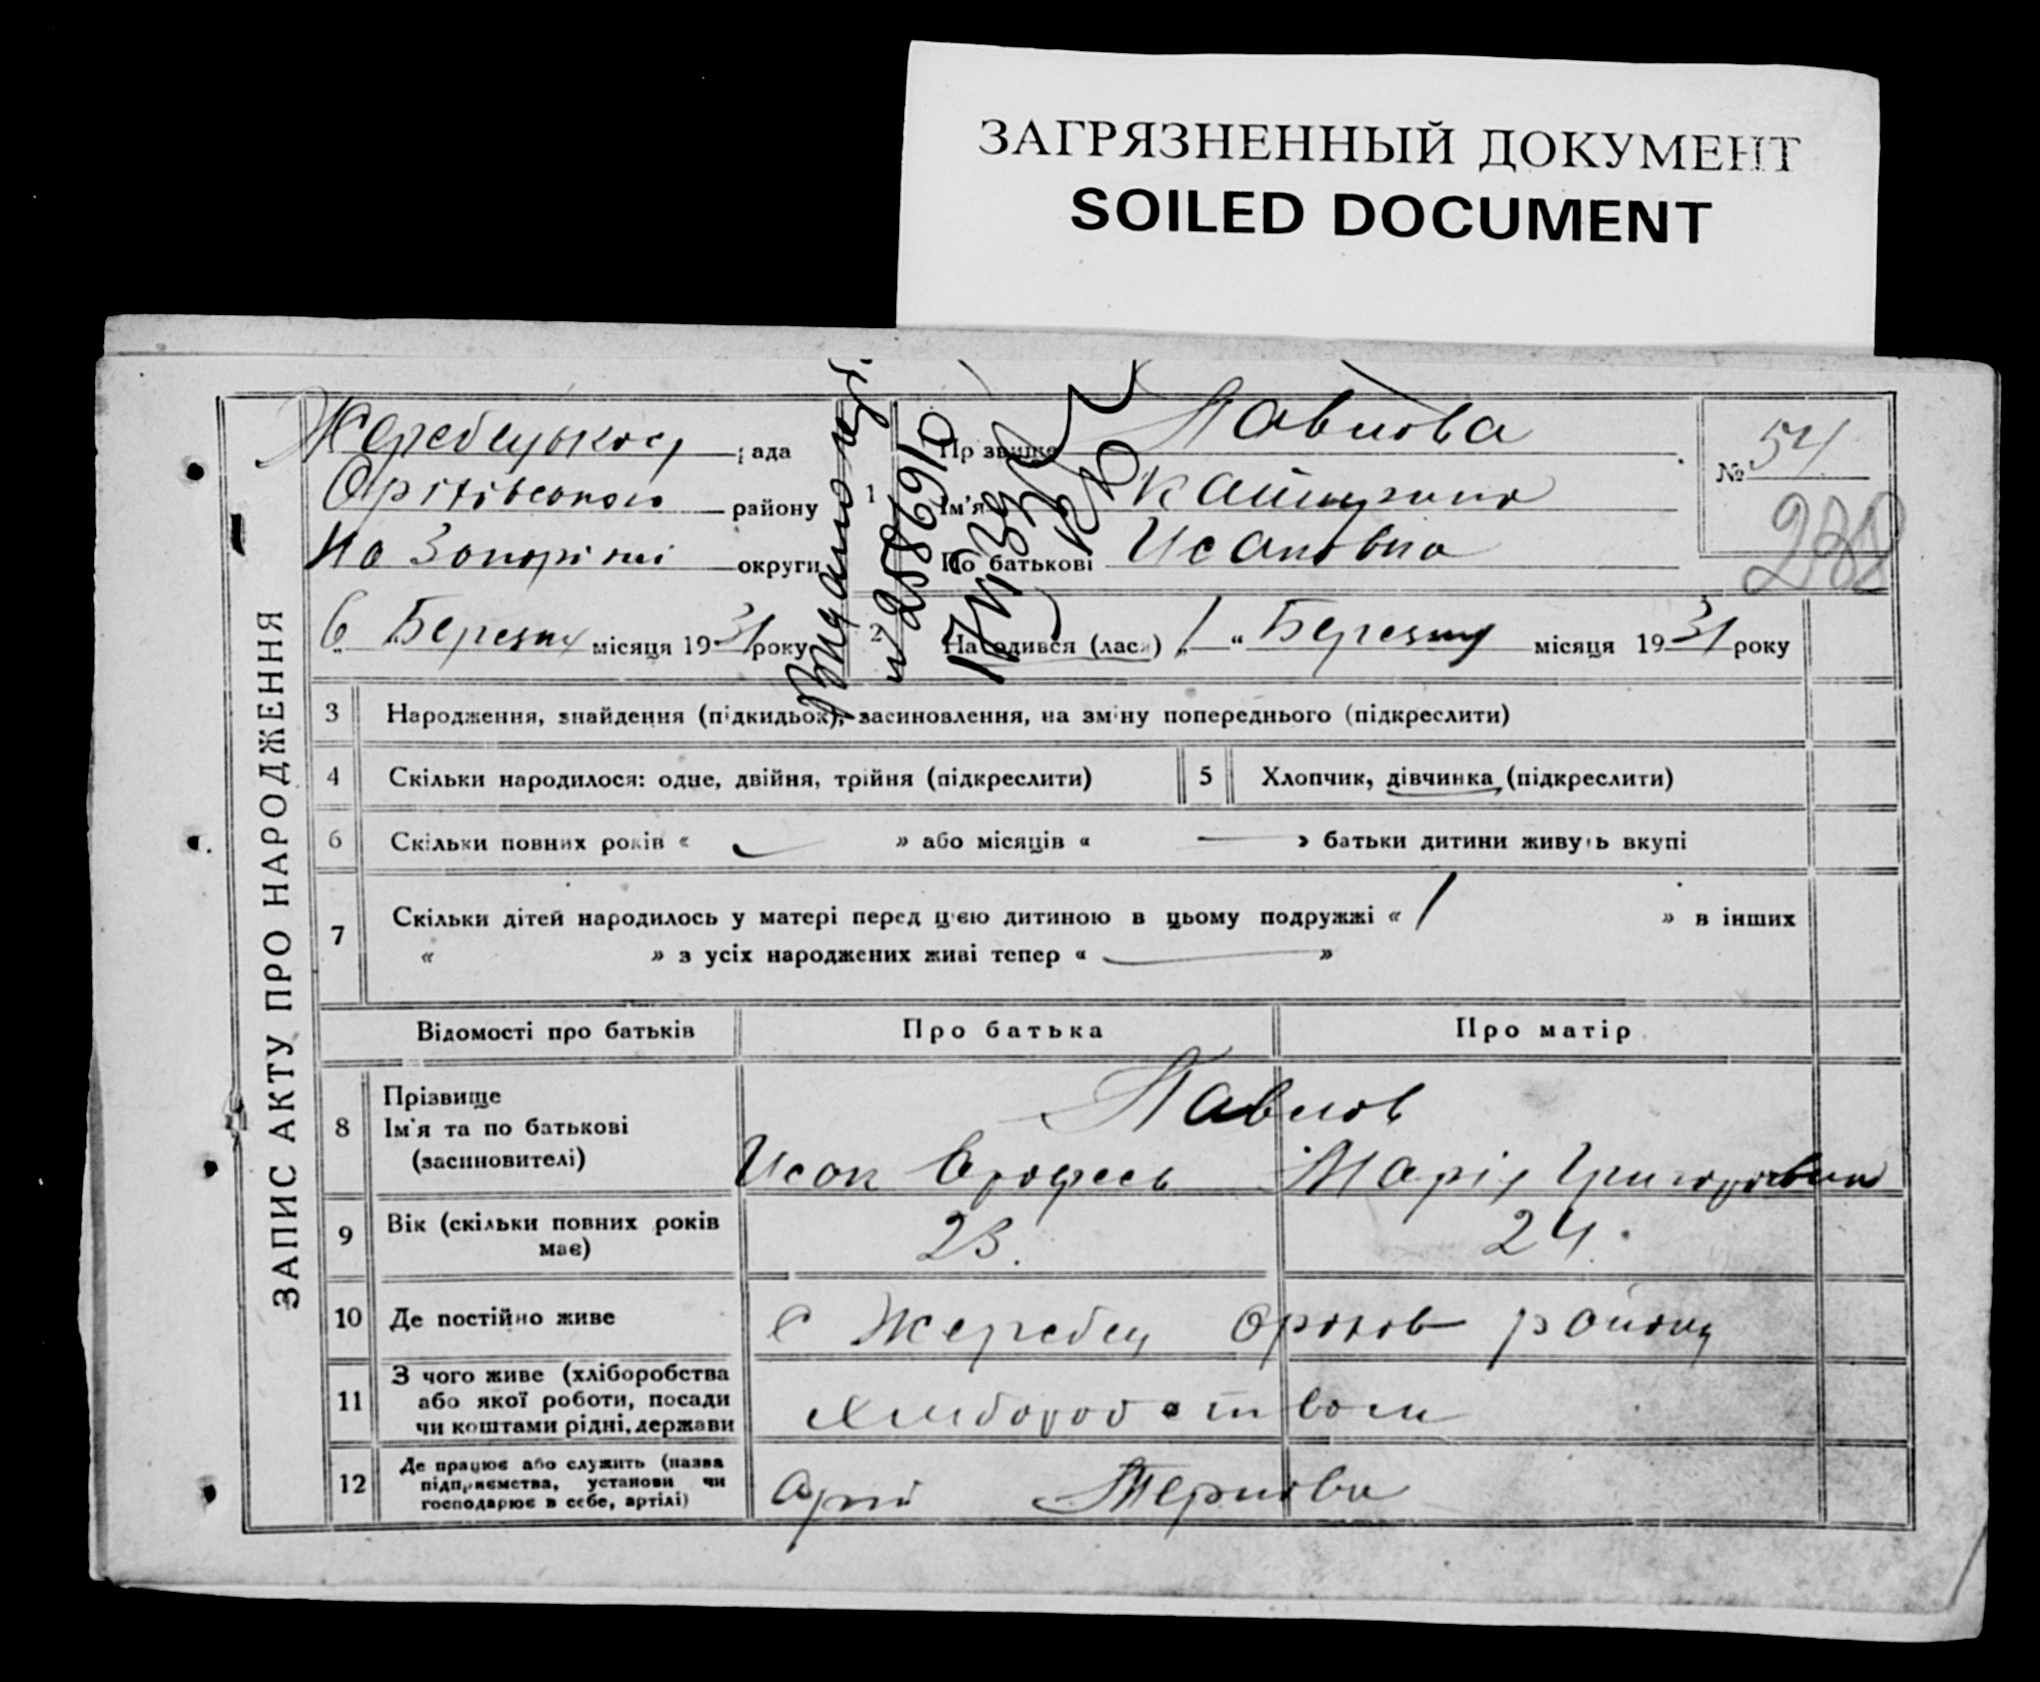 ЗАГРЯЗНЕННЫЙ ДОКУМЕНТ
SOILED DOCUMENT
ЗАПИС АКТУ ПРО НАРОДЖЕННЯ
Жеребецької рада
Оріхівського району
на Запоріжжі округи
6 Березня місяця 1931 року
Видано
№ 258691
1
Прізвище Павлова
Ім'я
По батькові
№ 54
238
2
Народився (лась) „1“ Березня місяця 1931 року
3 Народження, знайдення (підкидьок), засиновлення, на зміну попереднього (підкреслити)
4 Скільки народилося: одне, двійня, трійня (підкреслити)
5 Хлопчик, дівчинка (підкреслити)
6 Скільки повних років « » або місяців « — » батьки дитини живуть вкупі
7 Скільки дітей народилось у матері перед цією дитиною в цьому подружжі « 1 » в інших
« » з усіх народжених живі тепер « — »
Відомості про батьків Про батька Про матір
8 Прізвище
Ім'я та по батькові
(засиновителі)
Павлов
Марія Григоровна
9 Вік (скільки повних років має) 23. 24.
10 Де постійно живе с Жеребец Оріхов району
11 З чого живе (хліборобства або якої роботи, посади чи коштами рідні, держави хліборобством
12 Де працює або служить (назва підприємства, установи чи господарює в себе, артілі)